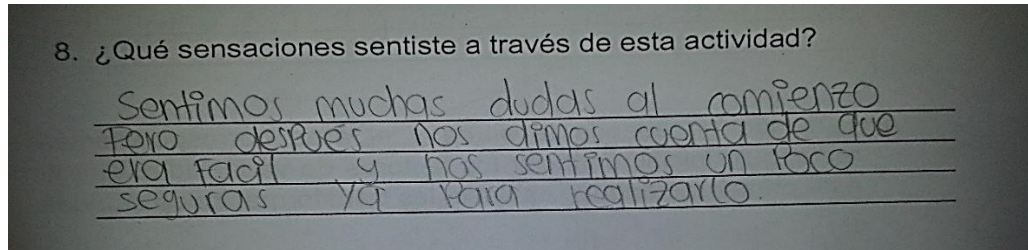 8. ¿Qué sensaciones sentiste a través de esta actividad?
Sentimos muchas dudas al comienzo
Pero después nos dimos cuenta de que
era facil y nos sentimos un Poco
seguras ya Para realizarlo.